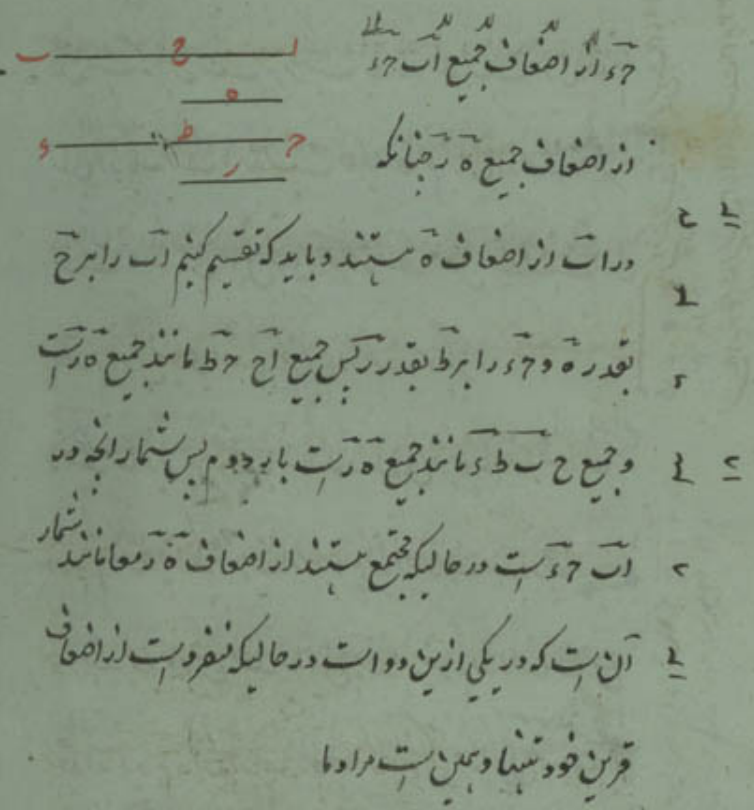 ا ح ب
ه
ح ط ء
ر
حَء از اضعاف جمیع اَب حَء
از اضعاف جمیع ه ر چنانکه
در اَب از اضعاف ه هستند و باید که تقسیم کنیم اَب را بر ح
بقدر ه و حَء را بر ط بقدر ر پس جمیع اح ح ط مانند جمیع ه ر است
و جمیع ح ب ط ء مانند جمیع ه ر است بار دوم پس شمار انچه در
اَب حَء است در حالیکه مجتمع هستند از اضعاف ه ر معا مانند شمار
آن است که در یکی ازین دو است در حالیکه منفرد است از اضعاف
قرین خود تنها و همین است مراد ما